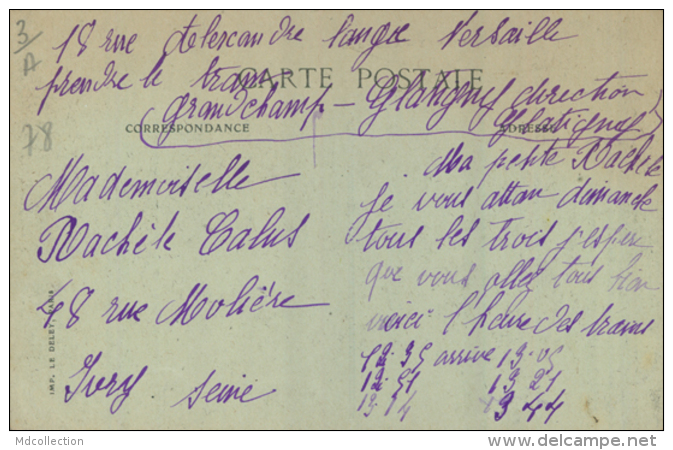 3/A
18 rue Alexandre Lange Versaille
prendre le tram
CARTE POSTALE
Grandchamp - Glatigny direction
Glatigny
CORRESPONDANCE
ADRESSE
78
Mademoiselle
Rachèle Calus
48 rue Molière
Ivry Seine
Ma petite Rachèle
je vous attan dimanche
tous les trois j'esper
que vous allez tous bien
voici l'heure des trains
12.35 arrive 13.05
12.51 13 21
13.14 13 44
IMP. LE DELEY, PARIS
Mdcollection
www.delcampe.net